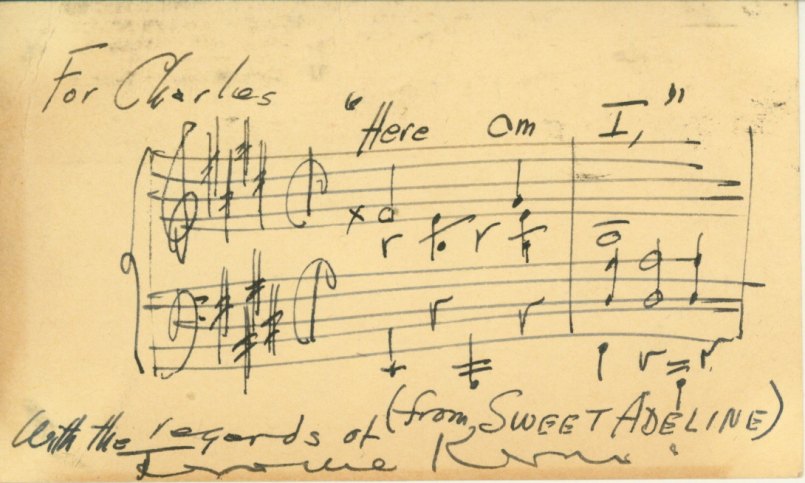 For Charles
"Here am I,"
(from SWEET ADELINE)
With the regards of
Jerome Kern